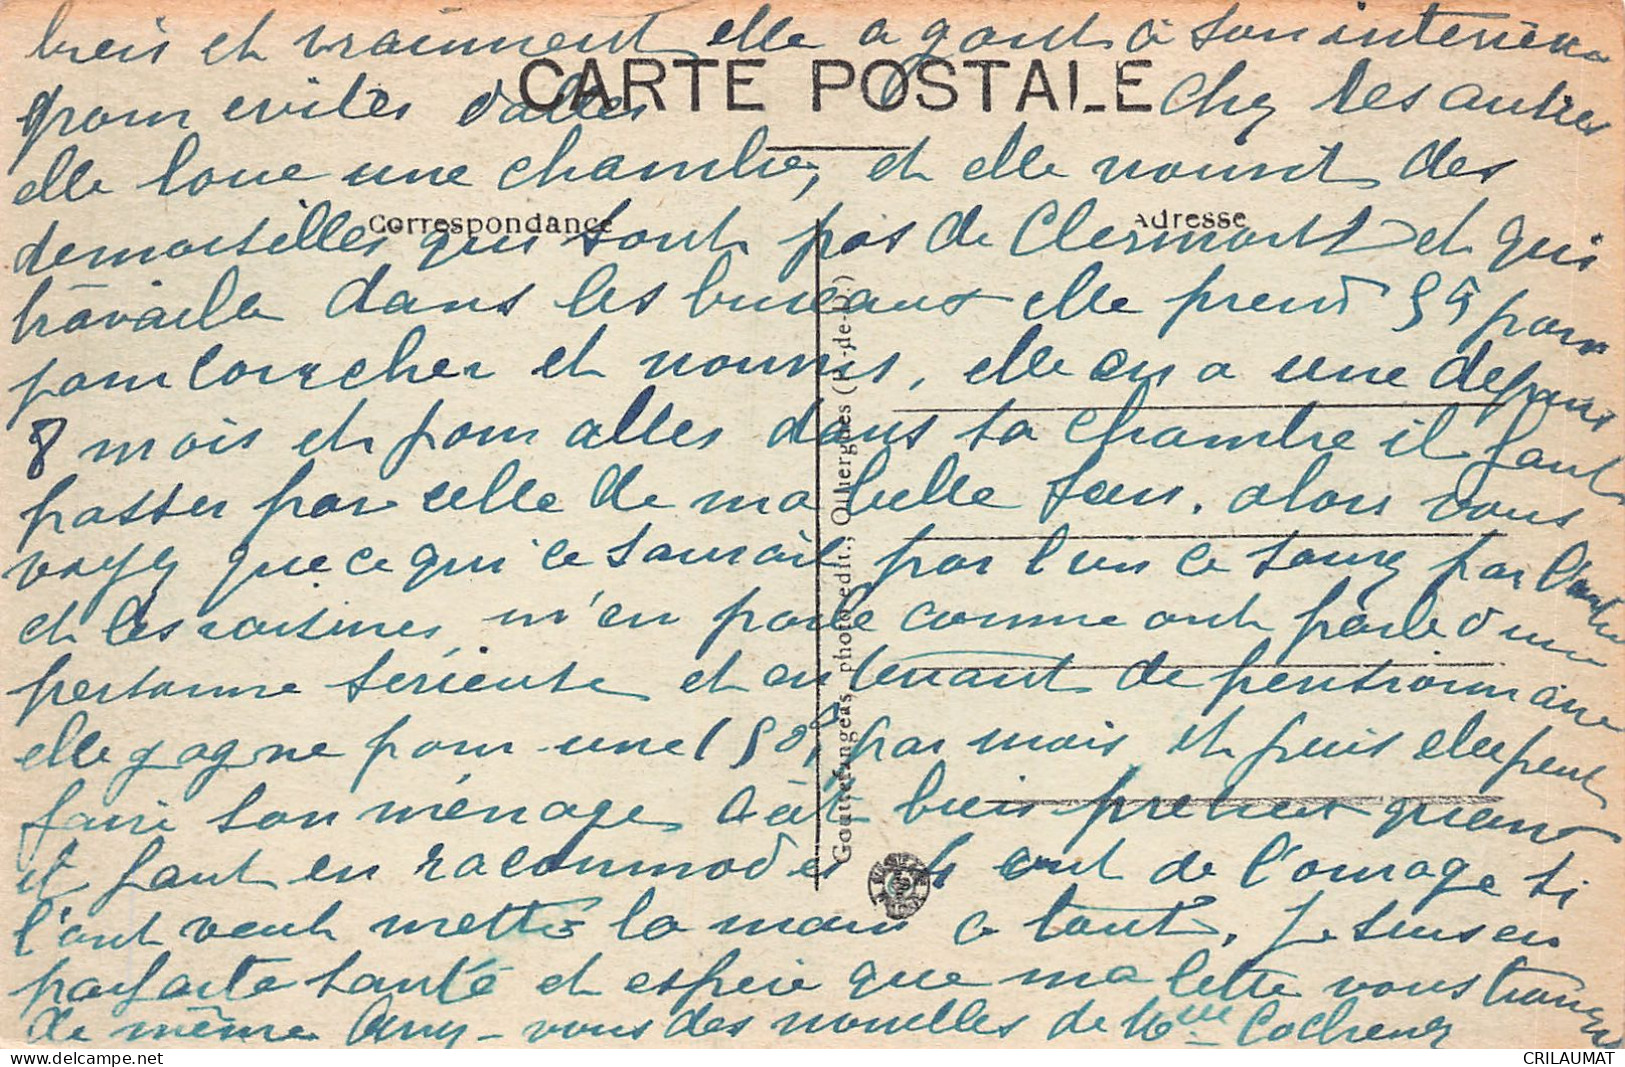 bien et vraiment elle a gout à son interieur
CARTE POSTALE
pour eviter d'aller chez les autres
elle loue une chambre, et elle nourrit des
Correspondance
Adresse
demoiselles qui sont pas de Clermont et qui
travaille dans les bureaux elle prend pour
pour coucher et nourris, elle en a une depuis
8 mois et pour aller dans sa chambre il faut
passer par celle de ma belle soeur. alors vous
voyez que ce qui ce saurait par l'un ce saurez par l'autre
et les voisines m'en parle comme ont parle d'une
personne sérieuse et en tenant de pentionnaire
elle gagne pour une par mois et puis elle peut
faire son ménage a ät bien prendre quand
il faut en racommoder ont de l'ouvrage si
l'ont veut mettre la main a tout. Je suis en
parfaite santé et espère que ma lettre vous trouvera
de même Avez-vous des nouvelles de Mme Cocheux
Gouttefangeas, photo edit., Olliergues (P.-de-D.)
CRILAUMAT